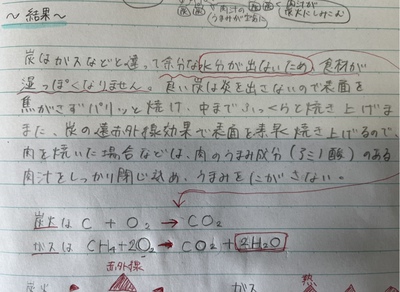 〜結果〜
肉汁の
うまみが
肉汁が
炭はガスなどと違って余分な水分が出ないため、食材が
湿っぽくなりません。良い炭は炎を出さないので表面を
焦がさずパリッと焼け、中までふっくらと焼き上げま
また、炭の遠赤外線効果で表面を素早く焼き上げるので、
肉を焼いた場合などは、肉のうまみ成分(アミノ酸)のある
肉汁をしっかり閉じ込め、うまみをにがさない。
炭火は C + O2 → CO2
ガスは CH4+2O2 → CO2 + 2H2O
赤外線
炭火
ガス
熱